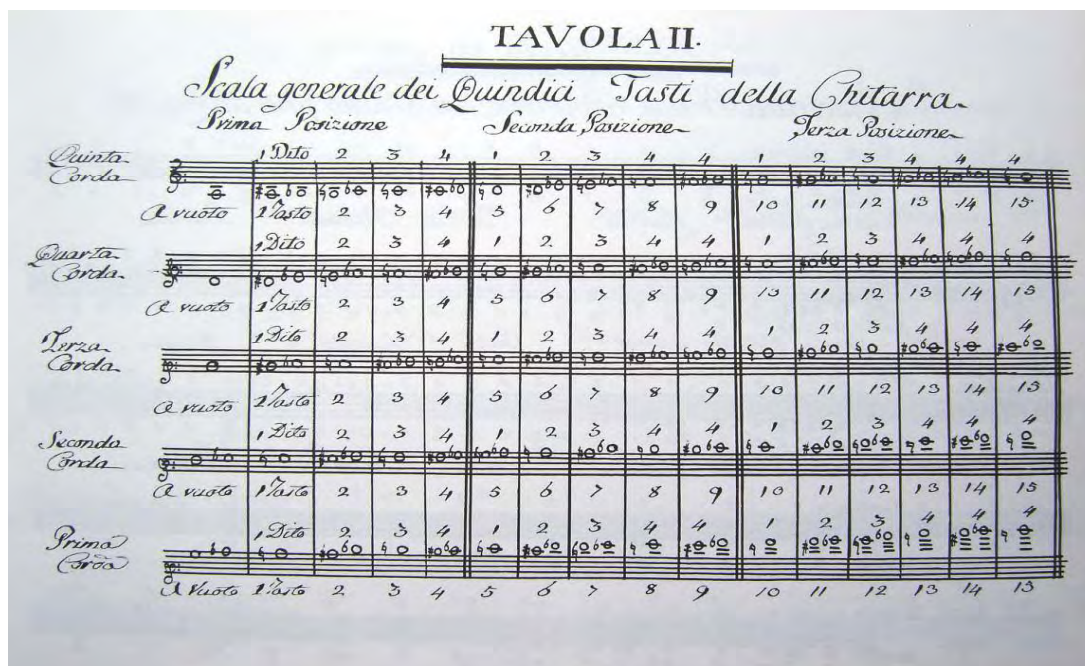 TAVOLA II.
Scala generale dei Quindici Tasti della Chitarra
Prima Posizione Seconda Posizione Terza Posizione
Quinta 1 Dito 2 3 4 1 2 3 4 4 1 2 3 4 4 4
Corda
A vuoto 1 Tasto 2 3 4 5 6 7 8 9 10 11 12 13 14 15
Quarta 1 Dito 2 3 4 1 2 3 4 4 1 2 3 4 4 4
Corda
A vuoto 1 Tasto 2 3 4 5 6 7 8 9 10 11 12 13 14 15
Terza 1 Dito 2 3 4 1 2 3 4 4 1 2 3 4 4 4
Corda
A vuoto 1 Tasto 2 3 4 5 6 7 8 9 10 11 12 13 14 15
Seconda 1 Dito 2 3 4 1 2 3 4 4 1 2 3 4 4 4
Corda
A vuoto 1 Tasto 2 3 4 5 6 7 8 9 10 11 12 13 14 15
Prima 1 Dito 2 3 4 1 2 3 4 4 1 2 3 4 4 4
Corda
A vuoto 1 Tasto 2 3 4 5 6 7 8 9 10 11 12 13 14 15